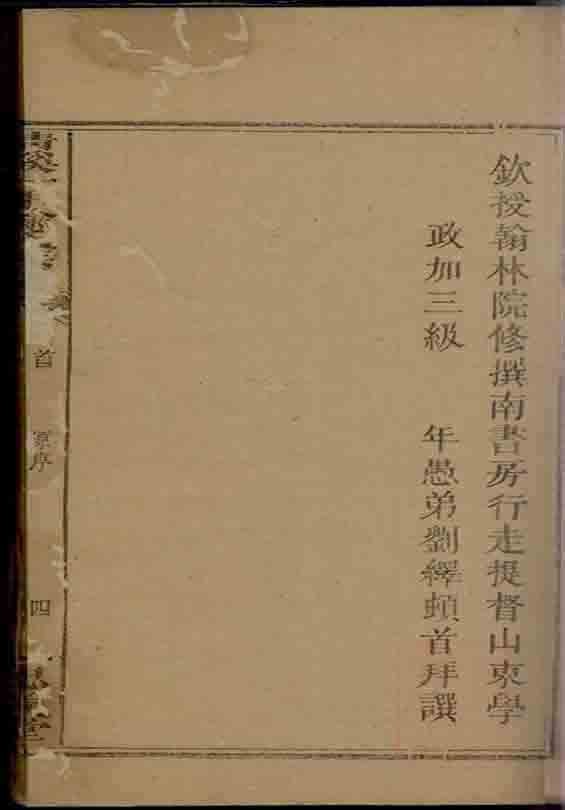 欽授翰林院修撰南書房行走提督山東學
政加三級　　年愚弟劉繹頓首拜譔
首
原序
四